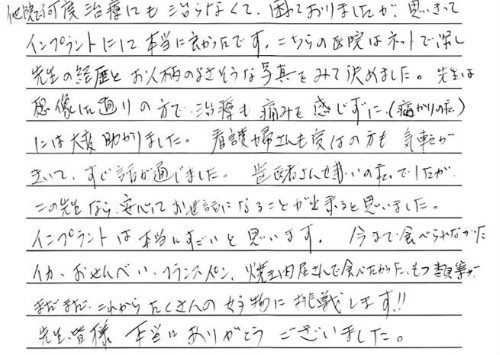 他院で何度治療しても治らなくて、困っておりましたが、思いきって
インプラントにして本当に良かったです。こちらの医院はネットで探し
先生の経歴とお人柄のよさそうな写真をみて決めました。先生は
想像した通りの方で、治療も痛みを感じずに、(痛がりの私)
には大変助かりました。看護婦さんも受付の方も気転が
きいて、すぐ話が通じました。歯医者さん嫌いの私でしたが、
この先生なら、安心してお世話になることが出来ると思いました。
インプラントは本当にすごいと思います。今まで食べられなかった
イカ、おせんべい、フランスパン、焼き肉屋さんで食べたかった、もつ類等が
まだまだ、これからたくさんの好物に挑戦します!!
先生、皆様、本当にありがとうございました。